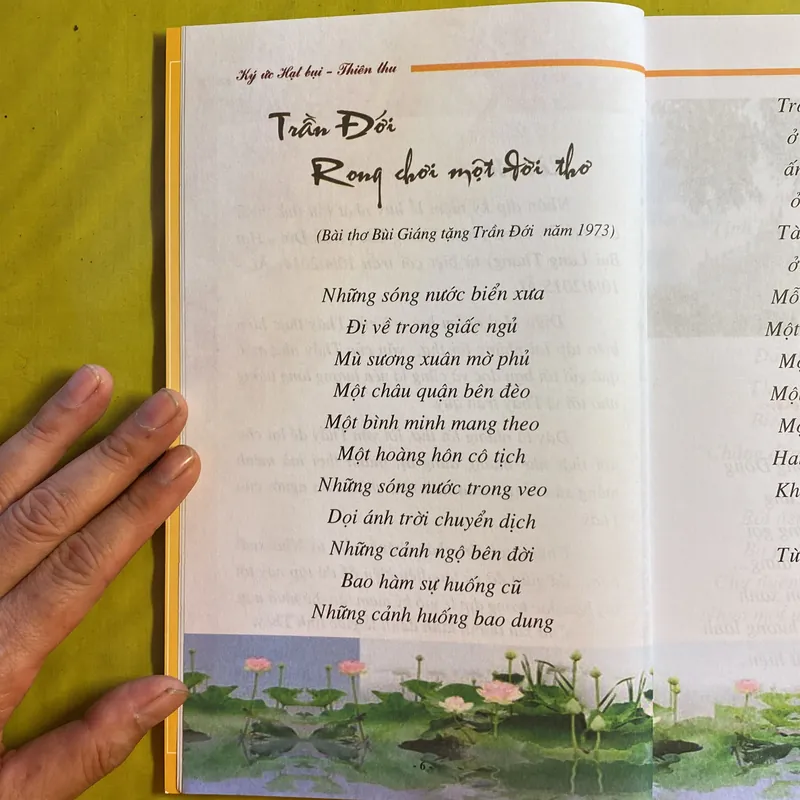 Ký ức Hạt bụi – Thiên thu
Trần Đới
Rong chơi một đời thơ
(Bài thơ Bùi Giáng tặng Trần Đới năm 1973)
Những sóng nước biển xưa
Đi về trong giấc ngủ
Mù sương xuân mờ phủ
Một châu quận bên đèo
Một bình minh mang theo
Một hoàng hôn cô tịch
Những sóng nước trong veo
Dọi ánh trời chuyển dịch
Những cảnh ngộ bên đời
Bao hàm sự huống cũ
Những cảnh huống bao dung
- 6 -
ở
ở
Tà
ở
Mỗ
Một
Một
Kh
Từ